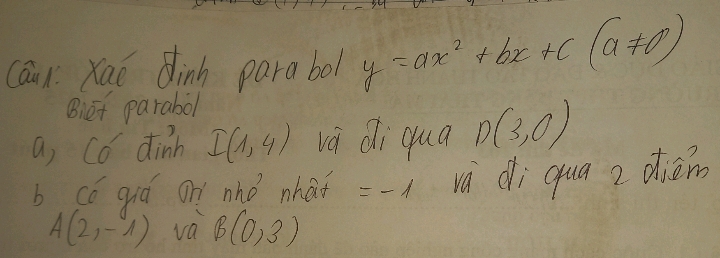 Câu 1: Xác định parabol y = ax² + bx + c (a ≠ 0)
Biết parabol
a, Có đỉnh I(1,4) và đi qua D(3,0)
b có giá trị nhỏ nhất = -1 và đi qua 2 điểm
A(2,-1) và B(0,3)